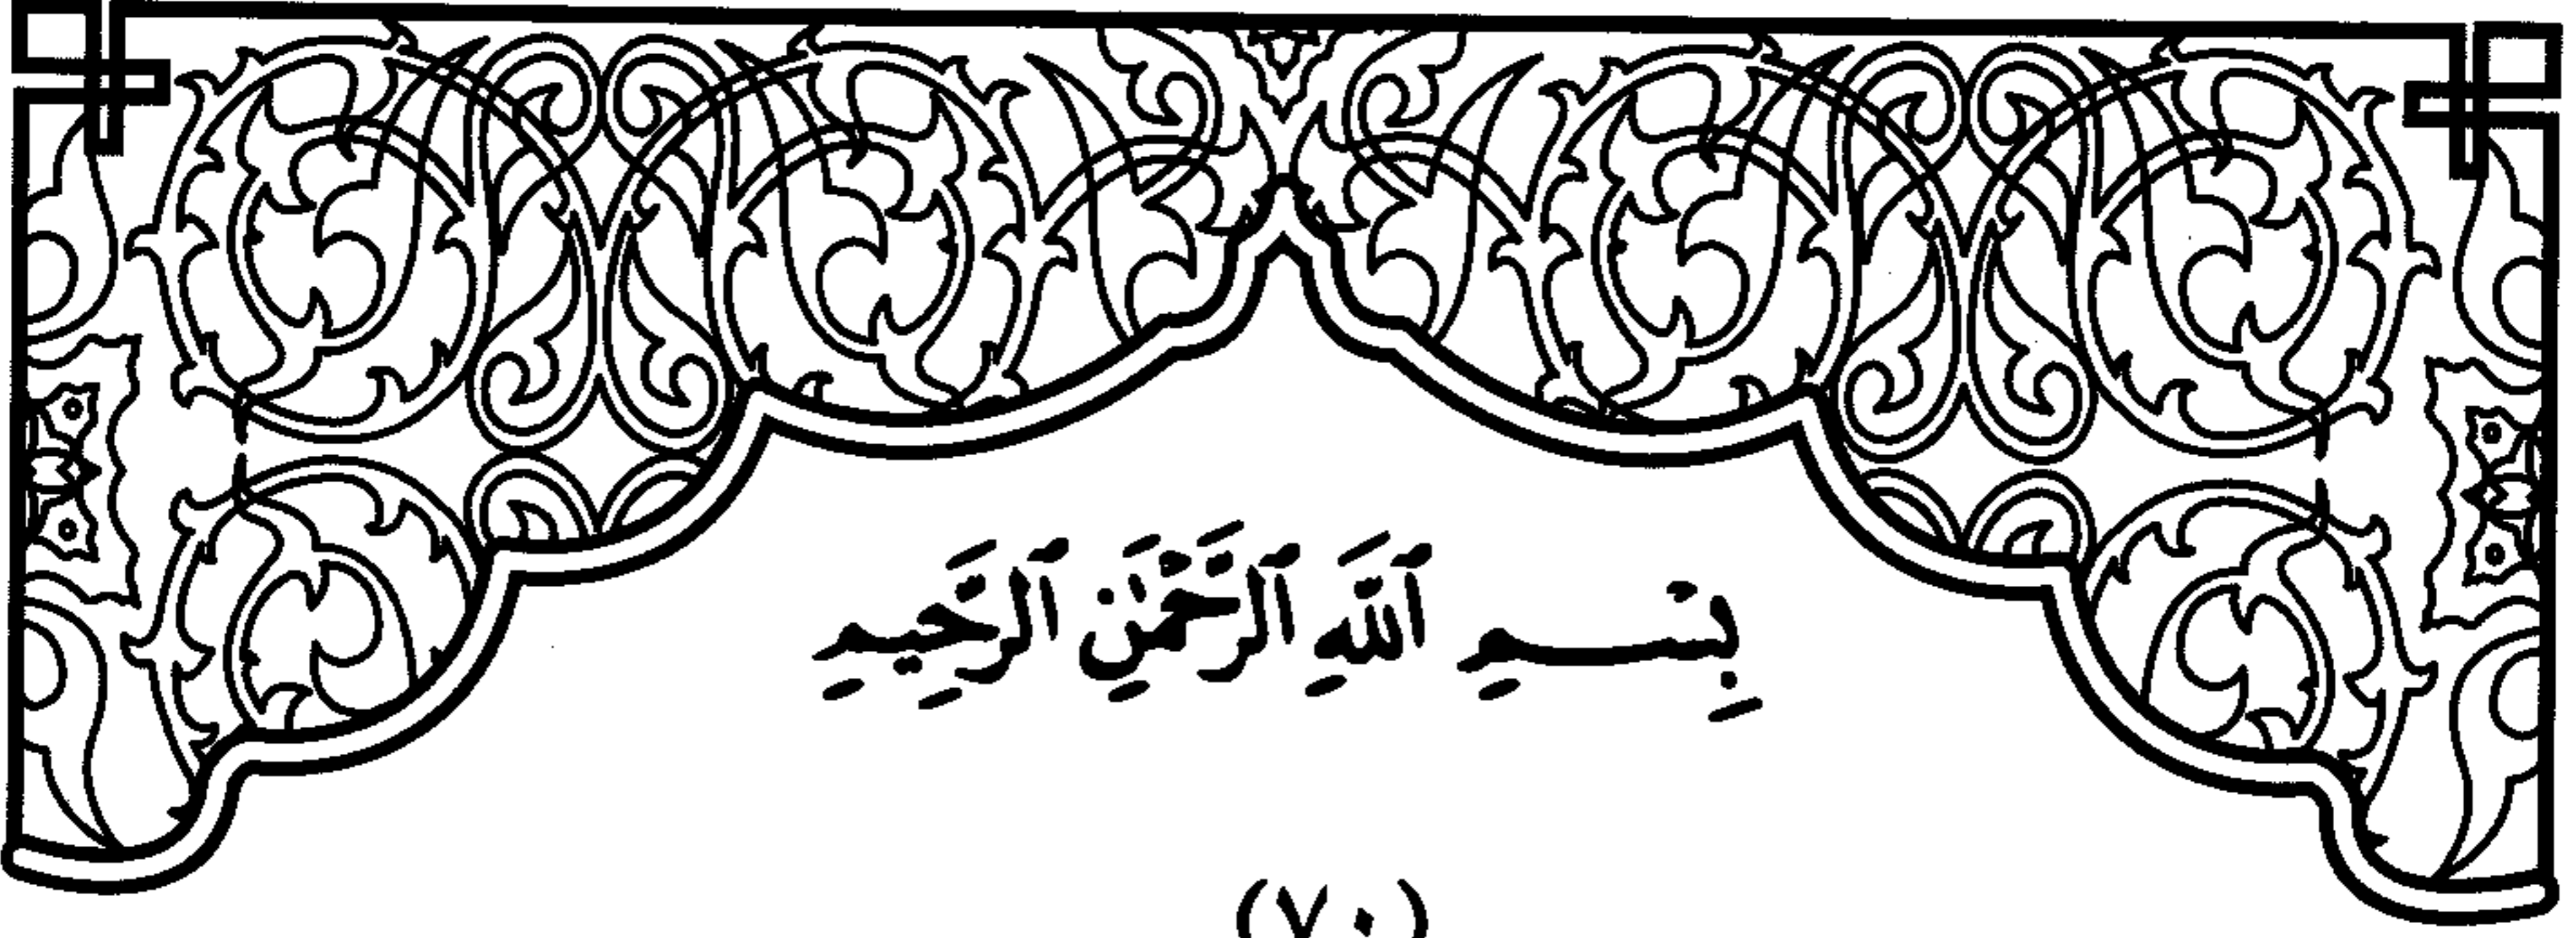 بِسْمِ ٱللَّهِ ٱلرَّحْمَٰنِ ٱلرَّحِيمِ
(٧٠)